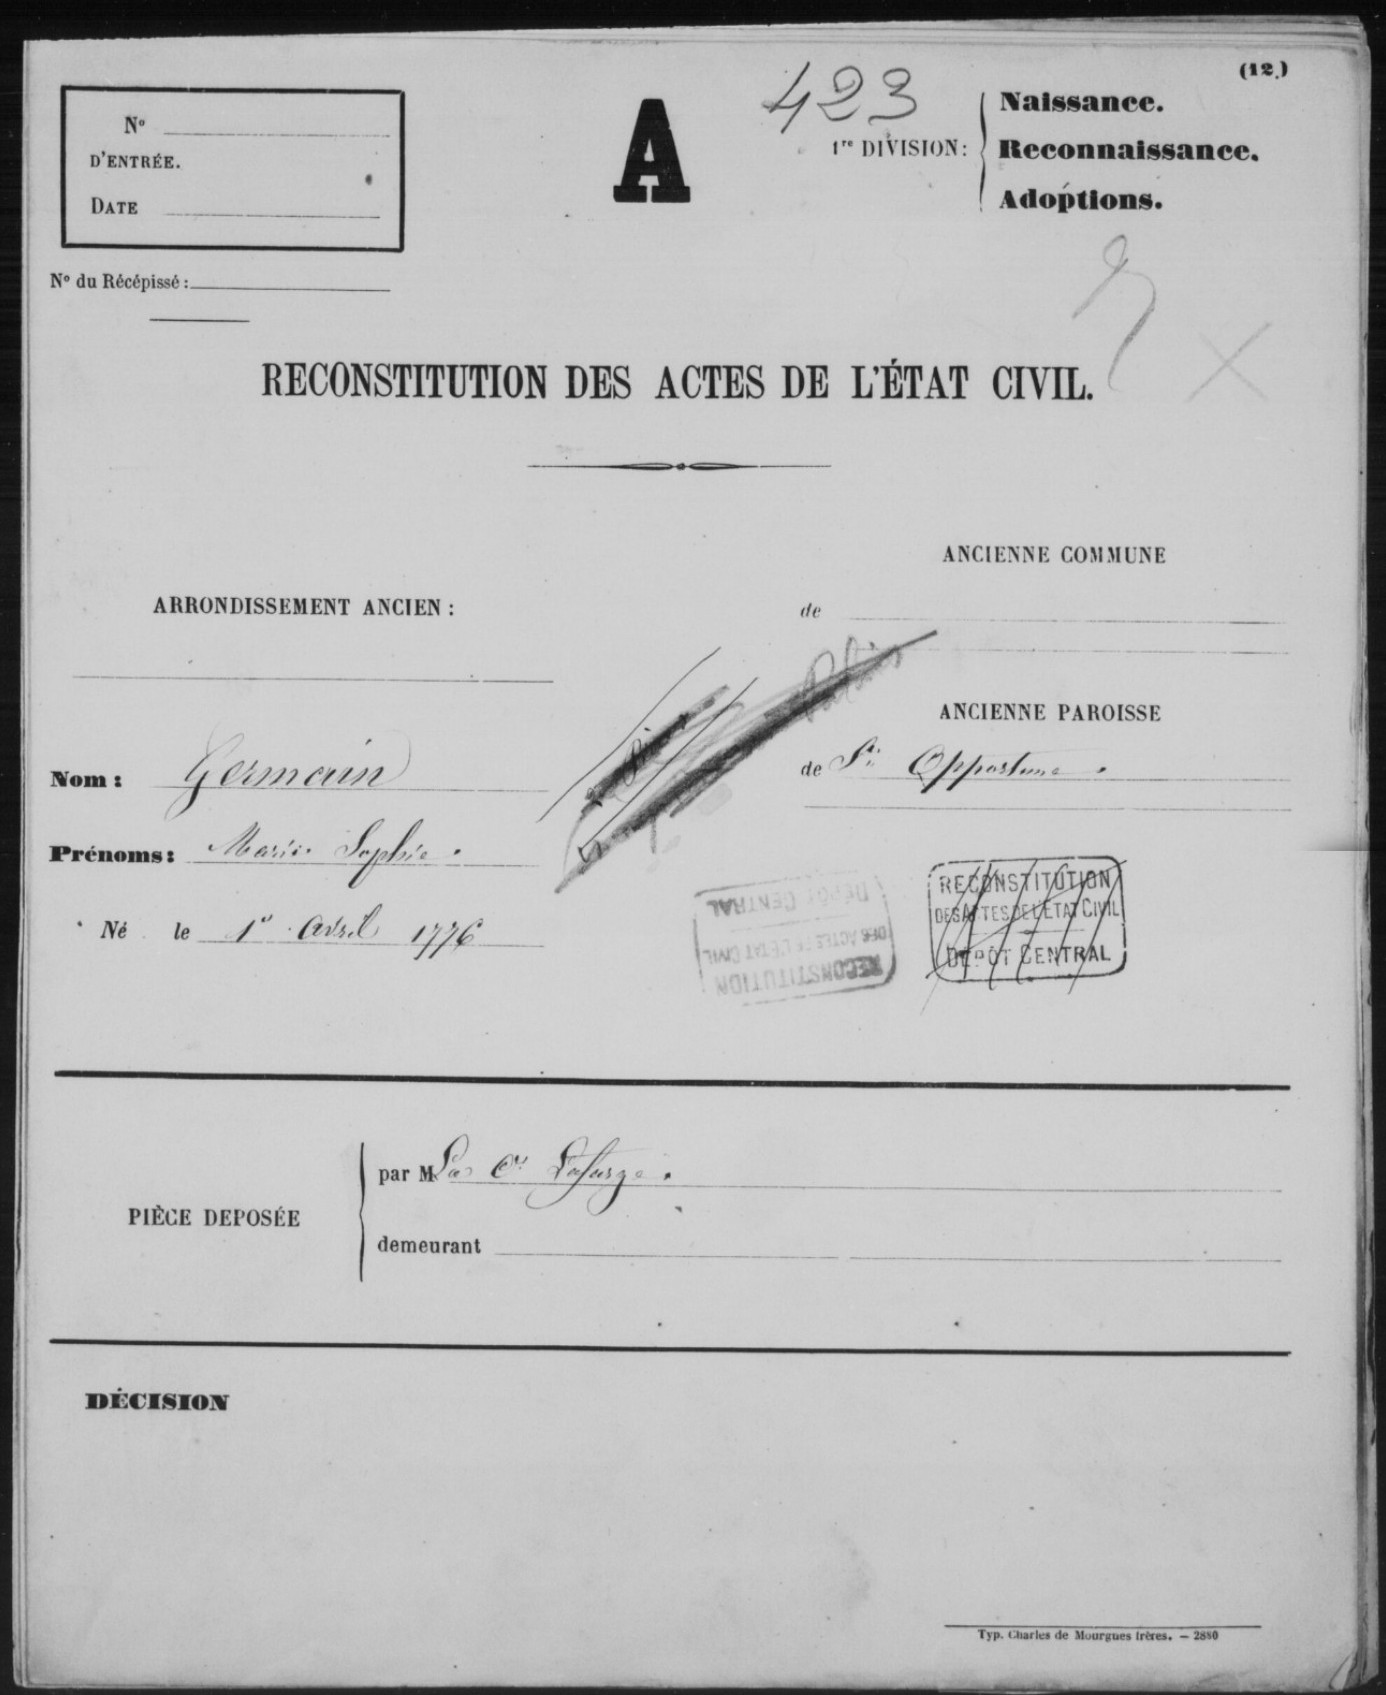 (12.)
423
Nº
D'ENTRÉE.
DATE
A
1re DIVISION:
Naissance.
Reconnaissance.
Adoptions.
Nº du Récépissé :
RECONSTITUTION DES ACTES DE L'ÉTAT CIVIL.
ARRONDISSEMENT ANCIEN :
ANCIENNE COMMUNE
de
ANCIENNE PAROISSE
de Ste Opportune.
Nom : Germain
Prénoms : Marie Sophie.
Né le 1er Avril 1776
RECONSTITUTION
DES ACTES DE L'ETAT CIVIL
DEPOT CENTRAL
RECONSTITUTION
DES ACTES DE L'ETAT CIVIL
DÉPOT CENTRAL
PIÈCE DEPOSÉE
par M La Cie Lafarge.
demeurant
DÉCISION
Typ. Charles de Mourgues frères. — 2880